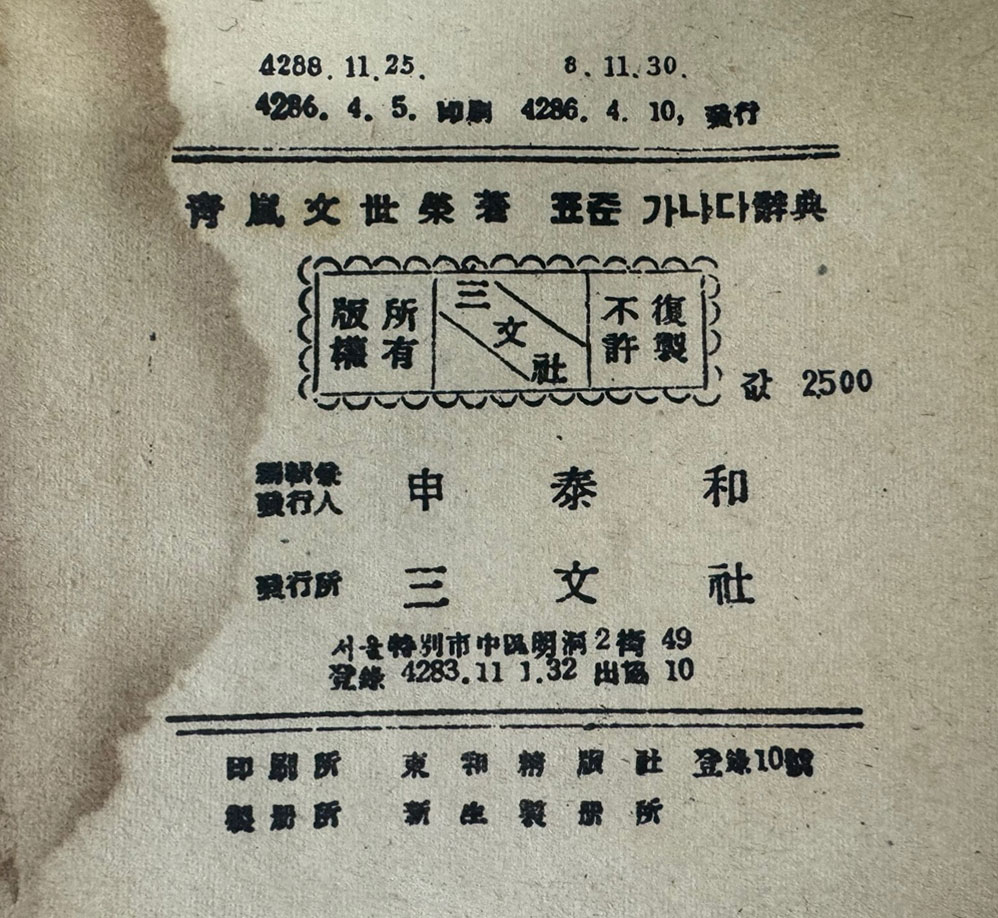 4288. 11. 25. 8. 11. 30.
4286. 4. 5. 印刷 4286. 4. 10, 發行
靑嵐文世榮著 표준 가나다辭典
版權所有
三文社
不許復製
값 2500
發行人 申泰和
發行所 三文社
서울特別市中區明洞2街 49
登錄 4283. 11 1. 32 出協 10
印刷所 東和精版社 登錄10號
製册所 新生製册所